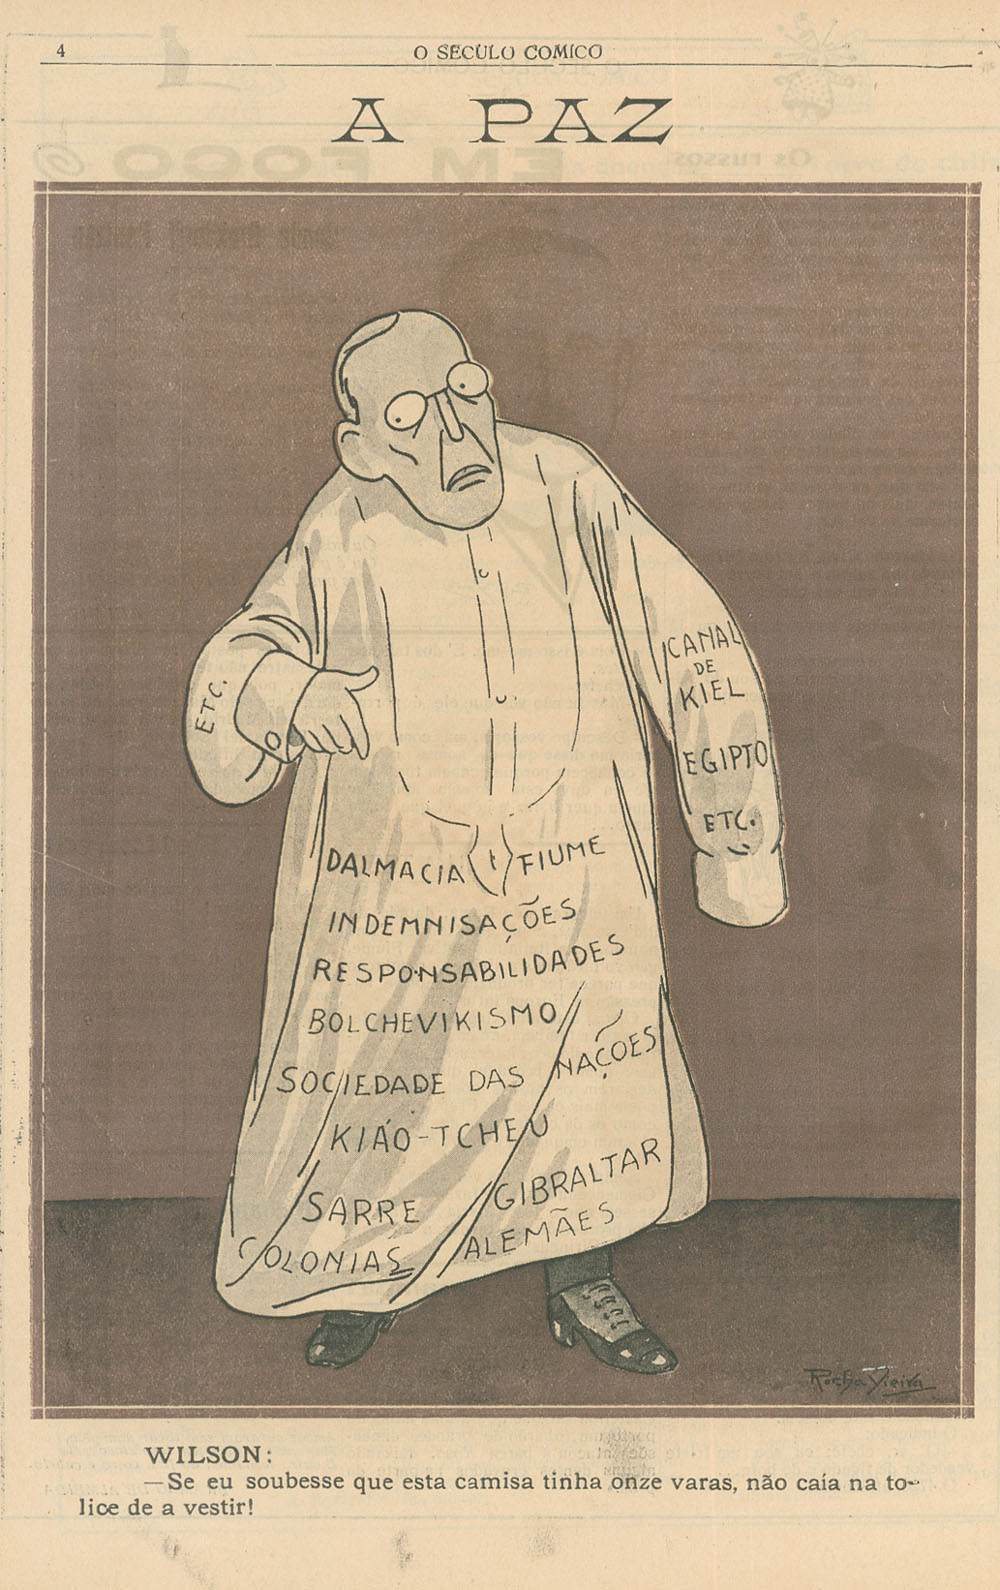 4
O SECULO COMICO
A PAZ
ETC.
CANAL
DE
KIEL
EGIPTO
ETC.
DALMACIA FIUME
INDEMNISAÇÕES
RESPONSABILIDADES
BOLCHEVIKISMO
SOCIEDADE DAS NAÇÕES
KIÁO-TCHEU
SARRE GIBRALTAR
COLONIAS ALEMÃES
Rocha Vieira
WILSON:
—Se eu soubesse que esta camisa tinha onze varas, não caía na to-
lice de a vestir!